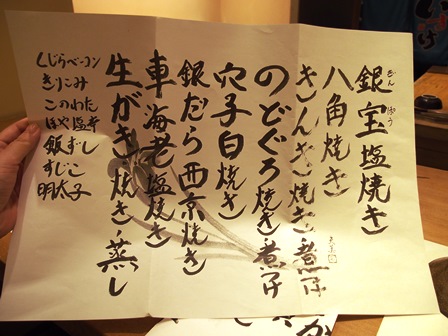 銀宝塩焼き
ぎんぽう
八角焼き
きんき焼き・煮つけ
のどぐろ焼き・煮つけ
穴子白焼き
銀だら西京焼き
車海老塩焼き
生がき焼き・蒸し
くじらベーコン
きりこみ
このわた
ほや塩辛
銀ずし
すじこ
明太子